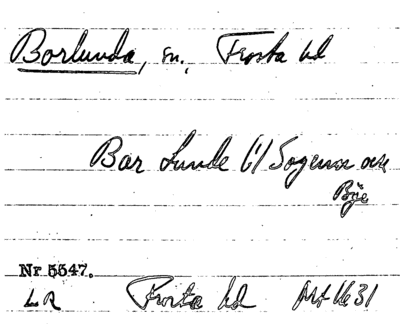 Borlunda, sn, Frosta hd
Bar Lunde til Sogenn
Bÿe
Nr 5547.
LR Frosta hd 1631